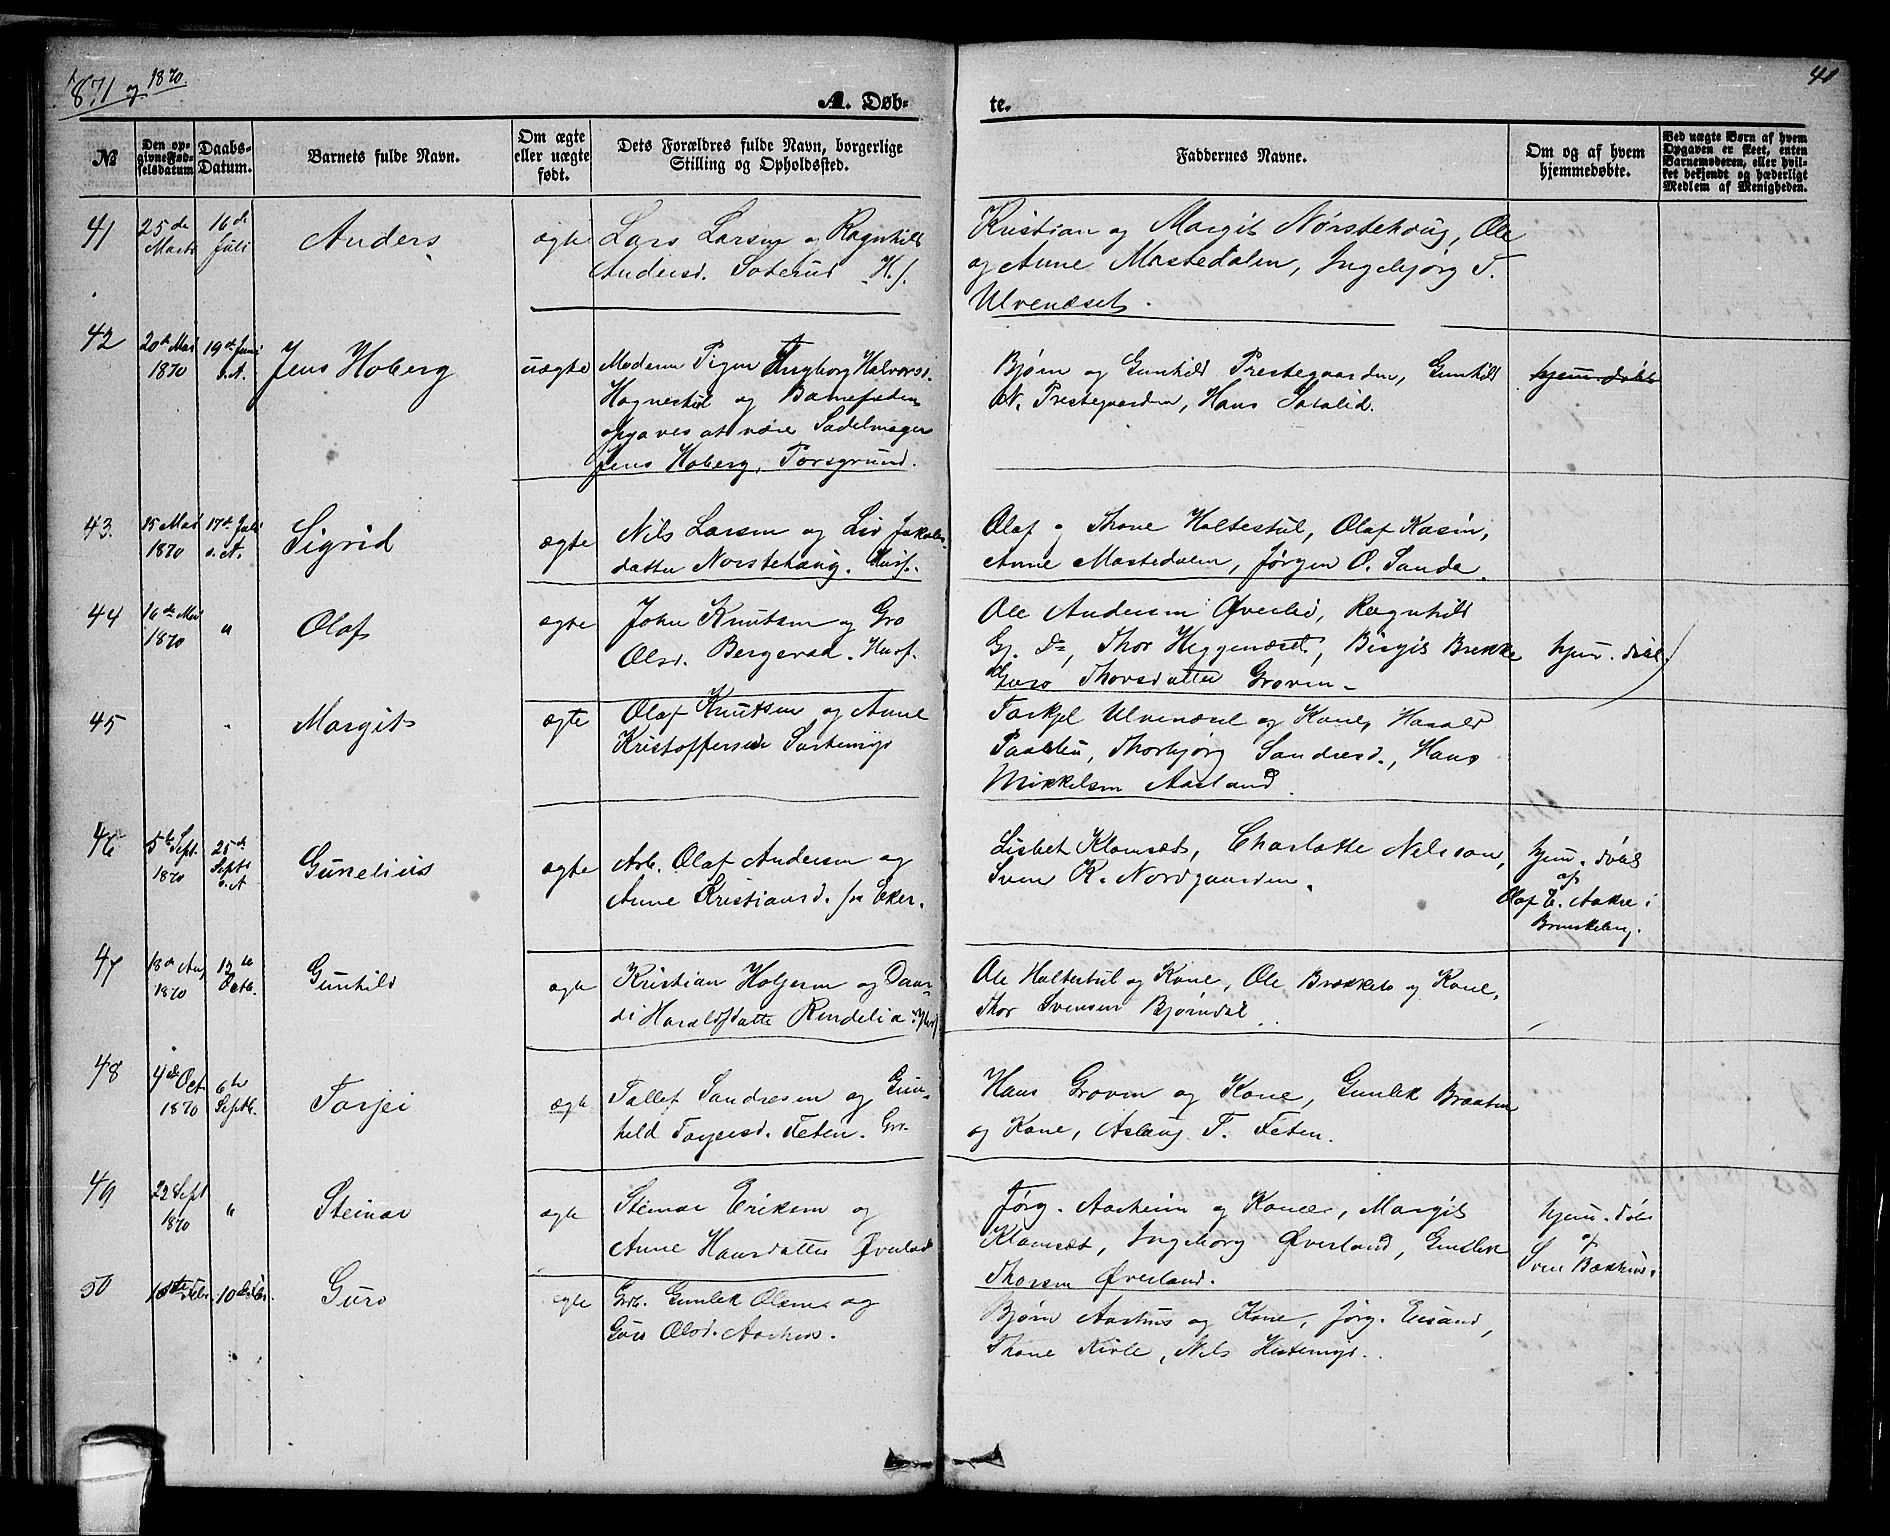 1871 og 1870.
41
A. Døb-
te.
№
Den op-
givne Fød-
selsdatum
Daabs-
Datum.
Barnets fulde Navn.
Om ægte
eller uægte
født.
Dets Forældres fulde Navn, borgerlige
Stilling og Opholdssted.
Faddernes Navne.
Om og af hvem
hjemmedøbte.
Ved uægte Børn af hvem
Opgaven er skeet, enten
Barnemoderen, eller hvil-
ket bekjendt og hæderligt
Medlem af Menigheden.
41
25de
Marts
16de
Juli
Anders
ægte
Lars Larsen og Ragnhild
Andersd. Soterud H.f.
Kristian og Margit Nørstehaug, Ole
og Anne Mastedalen, Ingebjørg T.
Ulvenæset.
42
20de Mai
1870
19de Juni
s.A.
Jens Hoberg
uægte
Moderen Pigen Ingborg Halvorsd.
Hognestul og Barnefaderen
opgaves at være Sadelmager
Jens Hoberg, Porsgrund.
Bjørn og Gunhild Prestegaarden, Gunhild
N. Prestegaarden, Hans Sataslid.
hjem. døbt
43.
15 Mai
1870
17de Juli
s.A.
Sigrid
ægte
Nils Larsen og Liv Jakobs
datter Norstehaug. Husf.
Olaf og Thone Haltestul, Olaf Kasin,
Anne Mastedalen, Jørgen O. Sanda.
44
16de Mai
1870
"
Olaf
ægte
John Knutsen og Gro
Olsd. Bergerud. Husf.
Ole Andersen Øverbø, Ragnhild
Gj. Ds, Thor Heggenæset, Birgit Brekke
Guro Thorsdatter Groven
hjem. døbt
45
Margit
ægte
Olaf Knutsen og Anne
Kristoffersd. Sortemyr
Torkjel Ulvenæset og Kone, Harald
Thorbjørg Sandresd., Hans
Mikkelsen Aasland.
46
5te Sept.
1870
25de
Septb
s.A
Gunelius
ægte
Arb. Olaf Andersen og
Anne Kristiansd. fra Eker.
Lisbet Klomset, Charlotte Nilsson,
Sven K. Nordgaarden.
hjem. døbt
af
Olaf E. Aakre i
Brunkeberg.
47
18de Aug
1870
12te
Octb.
Gunhild
ægte
Kristian Holjesen og Daar-
di Haraldsdatter Rendelia
Ole Haltestul og Kone, Ole Brokketo og Kone,
Thor Svensen Bjørndal
48
4de Oct
1870
6te
Septb.
Torjei
ægte
Tallef Sandresen og Gun-
hild Torjeisd. Feten. Gr.
Hans Groven og Kone, Gunlek Braaten
og Kone, Aslaug T. Feten.
49
22 Sept
1870
"
Steinar
ægte
Steinar Eriksen og
Anne Hansdatter Øverland
Jørg. Aasheim og Kone, Margit
Klomset, Ingeborg Øverland, Gunlek
Thorsen Øverland.
hjem. døbt
af
Sven Bakhus.
50
Guro
ægte
Grb. Gunlek Olsen og
Guro Olsd. Aarhus.
Bjørn Aarhus og Kone, Jørg. Eisand,
Thone Kirle, Nils Hestemyr.